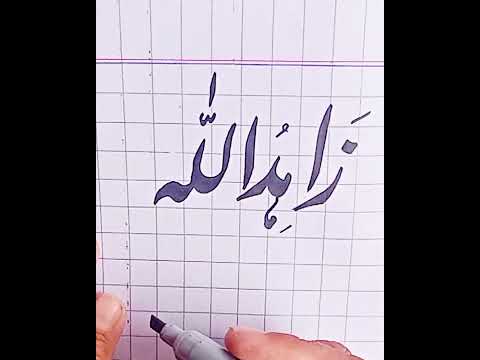 زَاہِدُاللّٰہ